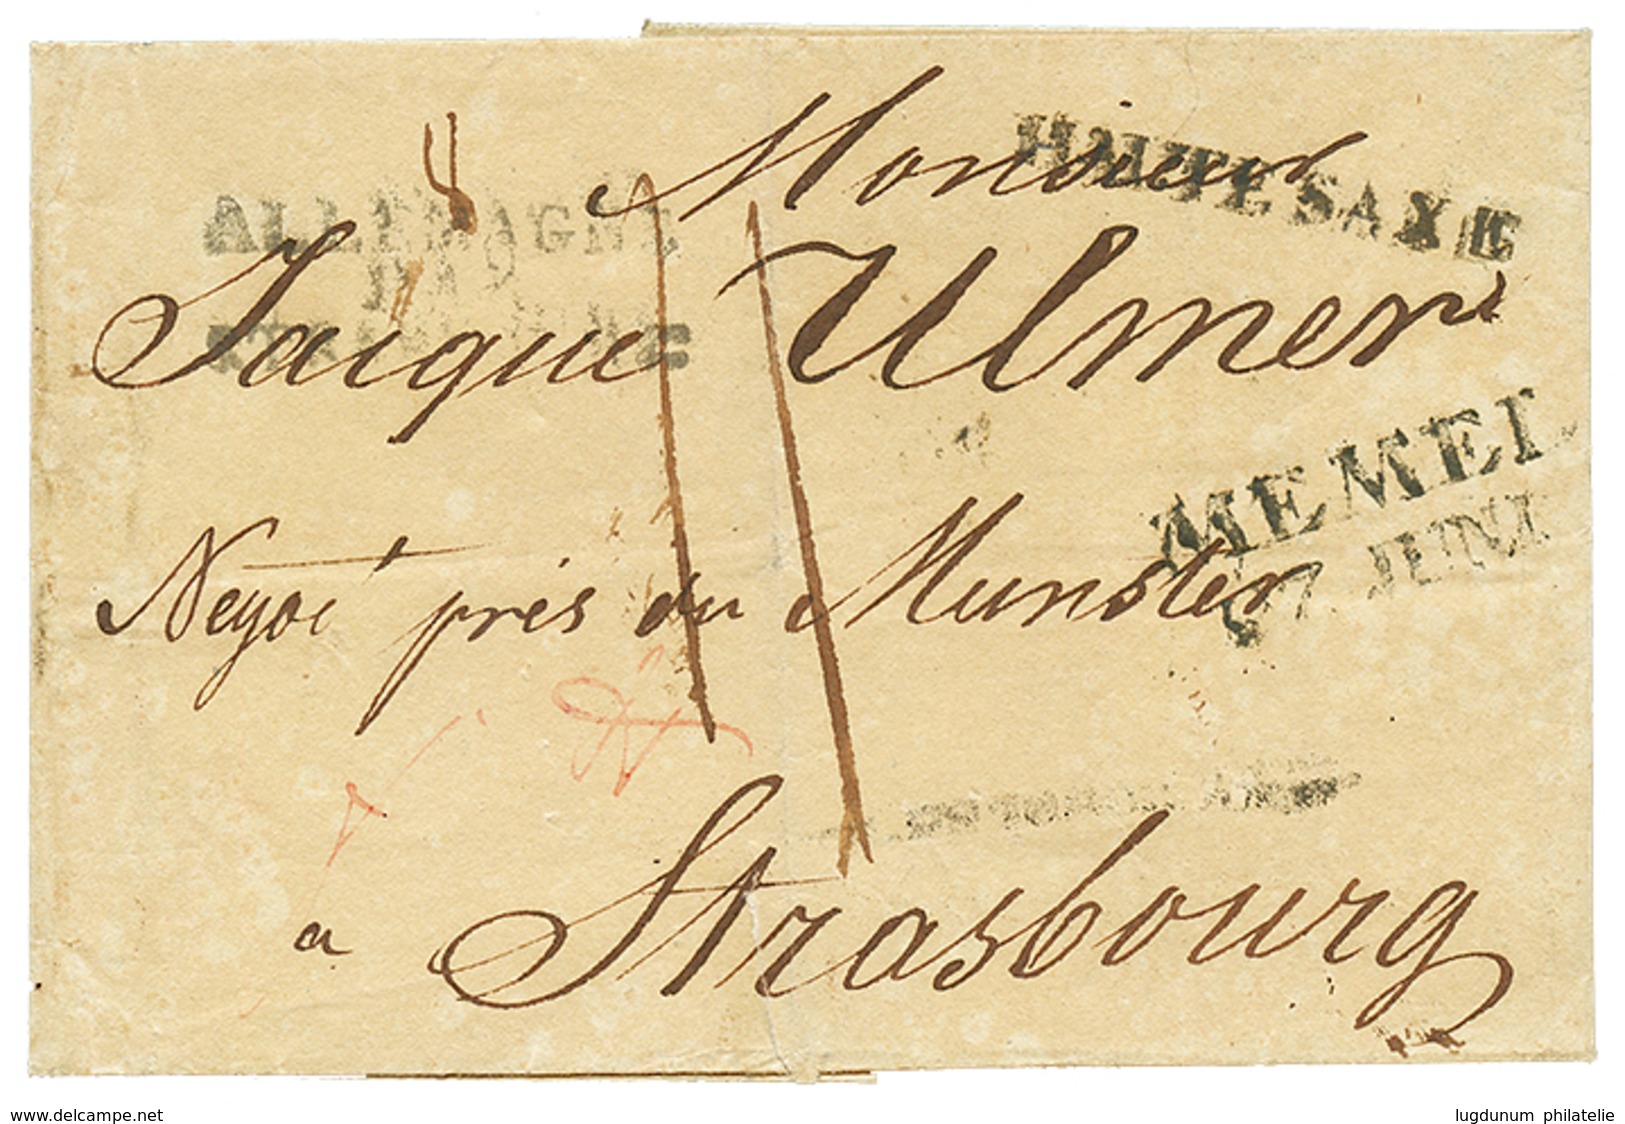 Monsieur
HAUTE SAXE
ALLEMAGNE
PAR
STRASBOURG
Jaique Ulmer
MEMEL
27 JUNI
Negoct près du Munster
a
Strasbourg
www.delcampe.net
lugdunum philatelie